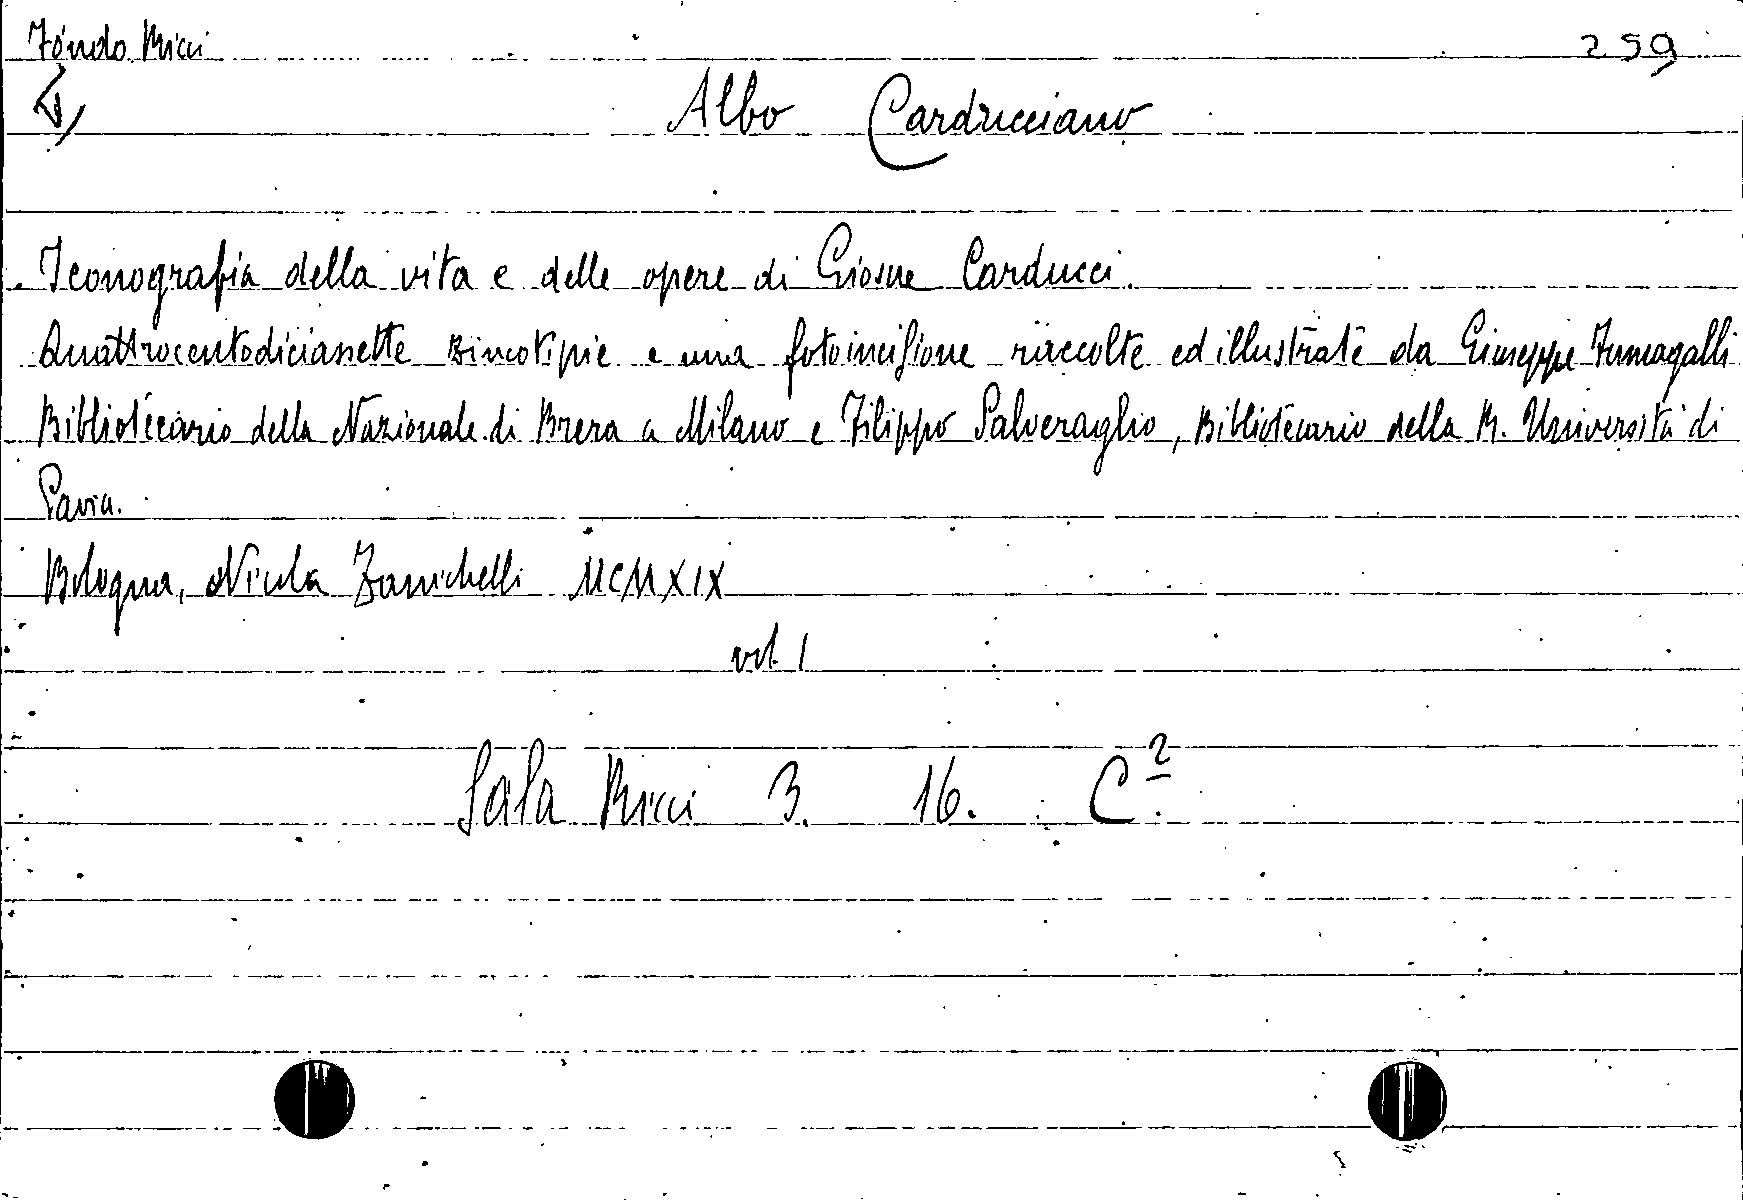 Fondo Ricci 259
Albo Carducciano
Iconografia della vita e delle opere di Giosue Carducci.
Quattrocentodiciassette zincotipie e una fotoincisione raccolte ed illustrate da Giuseppe Fumagalli
Bibliotecario della Nazionale di Brera a Milano e Filippo Salveraglio, Bibliotecario della R. Università di
Pavia.
Bologna, Nicola Zanichelli MCMXIX
vol. 1
Sala Ricci 3. 16. C²